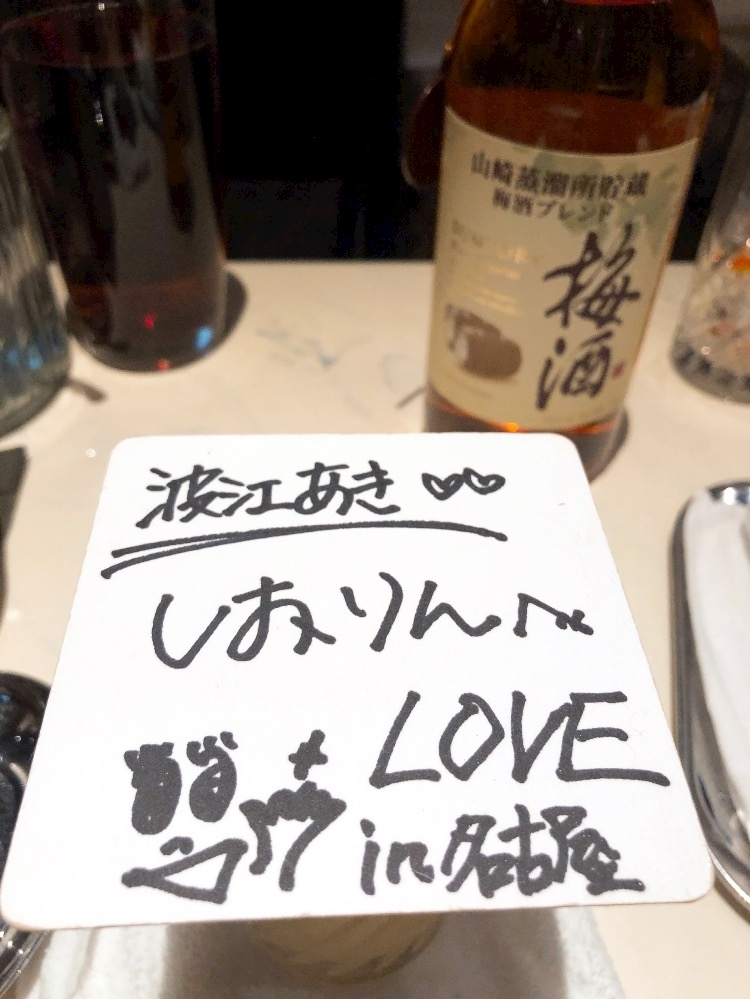 山崎蒸溜所貯蔵
梅酒ブレンド
梅酒
波江あき♡♡
しおりん♪
LOVE
in名古屋